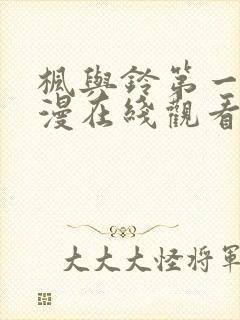 楓與鈴第一
漫在綫觀看
大大大怪將軍